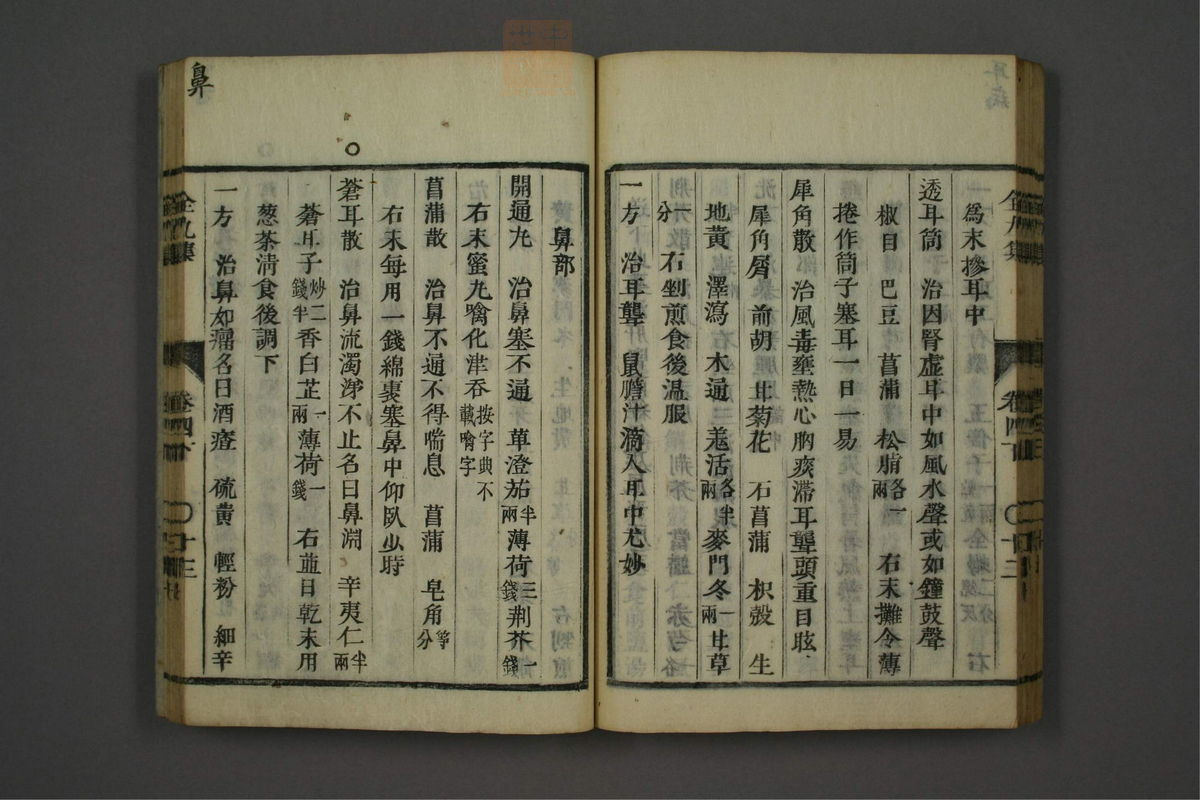 爲末摻耳中
透耳筒 治因腎虚耳中如風水聲或如鐘鼓聲
椒目 巴豆 菖蒲 松脂各一兩 右末攤令薄
捲作筒子塞耳一日一易
犀角散 治風毒壅熱心胸痰滯耳聾頭重目眩
犀角屑 前胡 甘菊花 石菖蒲 枳殼 生
地黃 澤瀉 木通 羗活各半兩 麥門冬一兩 甘草
一分 右剉煎食後温服
一方 治耳聾 鼠膽汁滴入耳中尤妙
鼻
鼻部
開通丸 治鼻塞不通 草澄茄半兩 薄荷三錢 荆芥一錢
右末蜜丸噙化津吞按字典不載噙字
菖蒲散 治鼻不通不得喘息 菖蒲 皂角等分
右末每用一錢綿裹塞鼻中仰臥少時
○
蒼耳散 治鼻流濁涕不止名曰鼻淵 辛夷仁半兩
蒼耳子炒二錢半 香白芷一兩 薄荷一錢 右並日乾末用
葱茶清食後調下
一方 治鼻如癅名曰酒㾴 硫黃 輕粉 細辛
卷四下